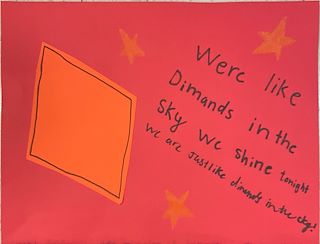 Were like
Dimands in the
sky we shine tonight
we are just like dimands in the sky!